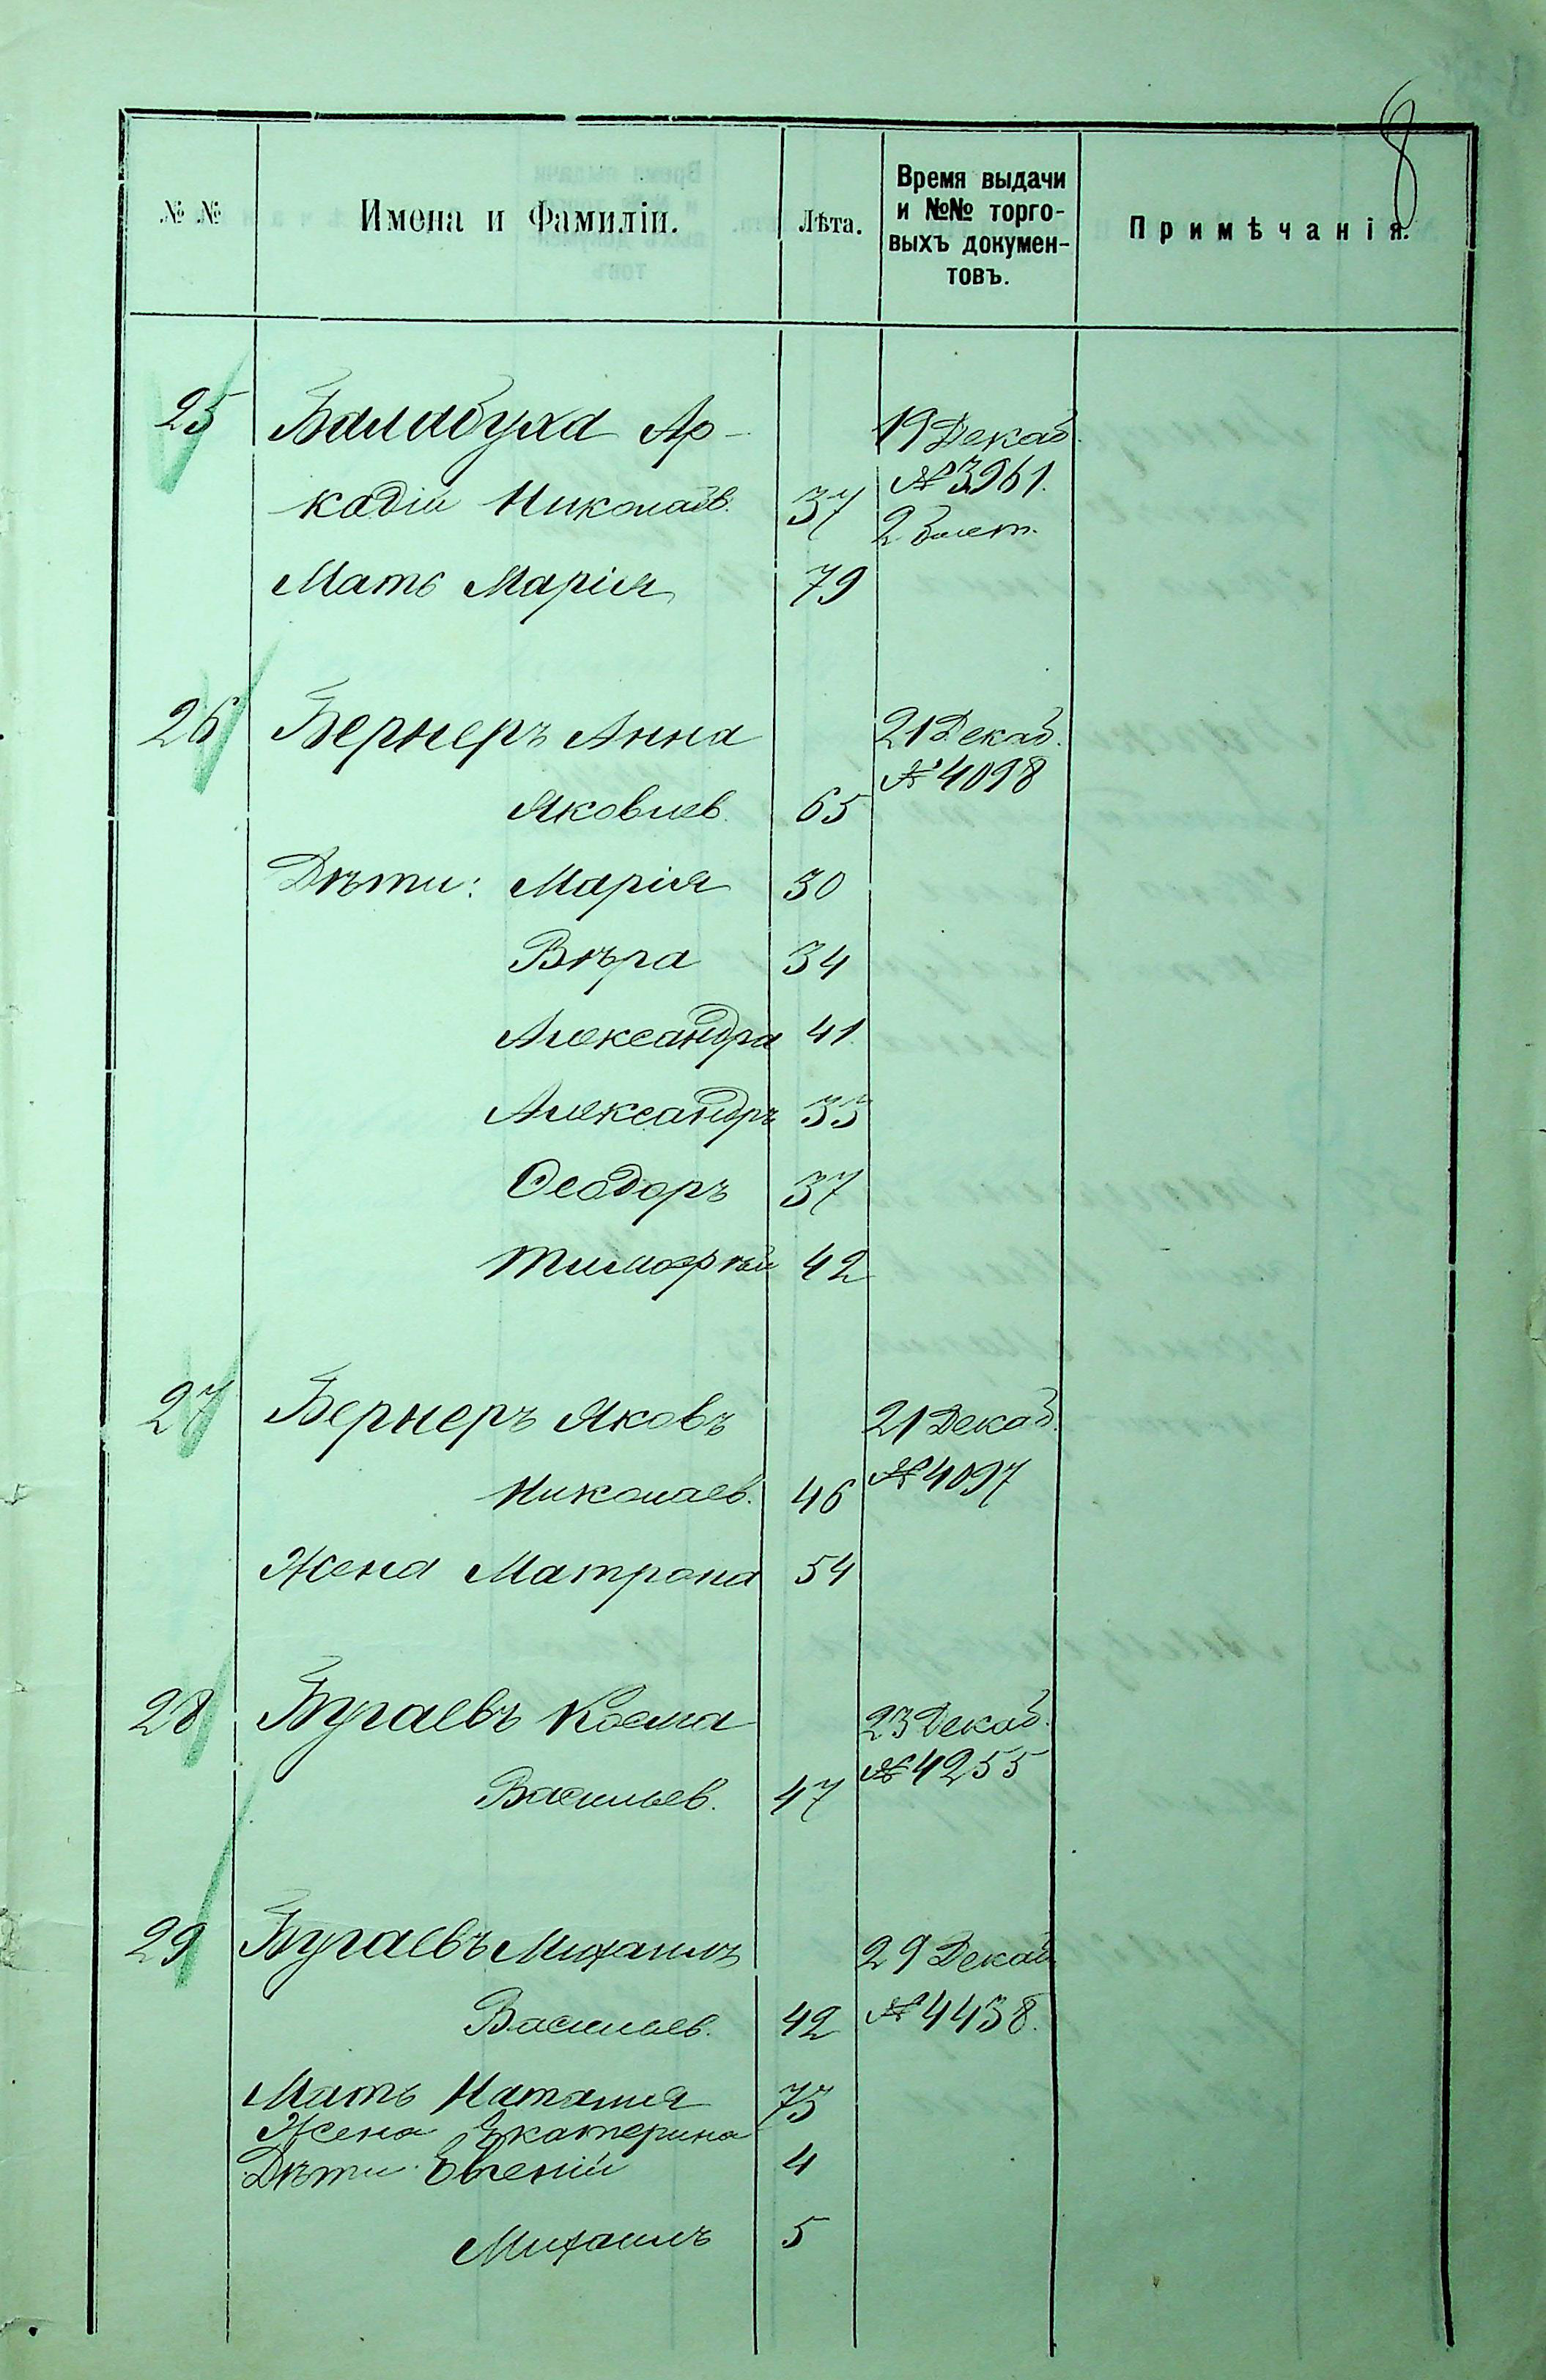 8
№ № Имена и Фамиліи. Лѣта. Время выдачи и №№ торго- выхъ докумен- товъ. Примѣчанія.
25 Балабуха Ар- 19 Декаб.
№ 3961.
кадій Николаев. 37 2 билет.
Мать Марія 79
26 Бернеръ Анна 21 Декаб.
№ 4098
Яковлев. 65
Дѣти: Марія 30
Вѣра 34
Александра 41
Александръ 33
Ѳеодоръ 37
Тимофѣй 42
27 Бернеръ Яковъ 21 Декаб.
Николаев. 46 № 4097
Жена Матрона 54
28 Бугаевъ Косма 23 Декаб.
№ 4255
Васильев. 47
29 Бугаевъ Михаилъ 29 Декаб.
Васильев. 42 № 4438.
Мать Наталия 73
Жена Екатерина
Дѣти Евгеній 4
Михаилъ 5